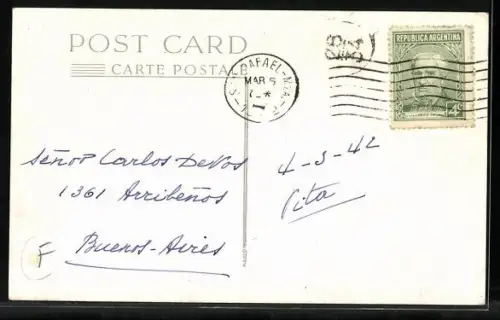 POST CARD
CARTE POSTALE
S. RAFAEL-MZA.
MAR 5
REPUBLICA ARGENTINA
4c
Señor Carlos DeVos
1361 Arribeños
Buenos-Aires
F
4-3-42
Tita